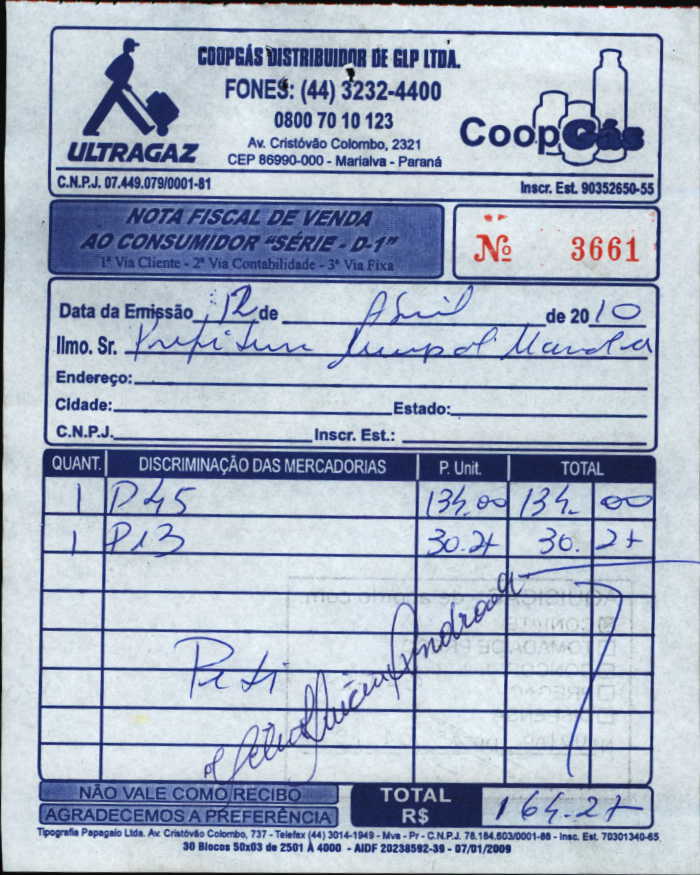 COOPGÁS DISTRIBUIDOR DE GLP LTDA.
FONES: (44) 3232-4400
0800 70 10 123
Av. Cristóvão Colombo, 2321
CEP 86990-000 - Marialva - Paraná
ULTRAGAZ
CoopGás
C.N.P.J. 07.449.079/0001-81
Inscr. Est. 90352650-55
NOTA FISCAL DE VENDA
AO CONSUMIDOR "SÉRIE - D-1"
1ª Via Cliente - 2ª Via Contabilidade - 3ª Via Fixa
Nº 3661
Data da Emissão 12 de Abril de 2010
Ilmo. Sr. Prefitura
Endereço:
Cidade: Estado:
C.N.P.J. Inscr. Est.:
QUANT. DISCRIMINAÇÃO DAS MERCADORIAS P. Unit. TOTAL
1 P45 134,00 134. 00
1 P13 30.27 30. 27
Peti
Andrade
NÃO VALE COMO RECIBO
AGRADECEMOS A PREFERÊNCIA
TOTAL R$ 164.27
Tipografia Papagaio Ltda. Av. Cristóvão Colombo, 737 - Telefax (44) 3014-1949 - Mva - Pr - C.N.P.J. 78.184.603/0001-88 - Insc. Est. 70301340-65
30 Blocos 50x03 de 2501 À 4000 - AIDF 20238592-39 - 07/01/2009